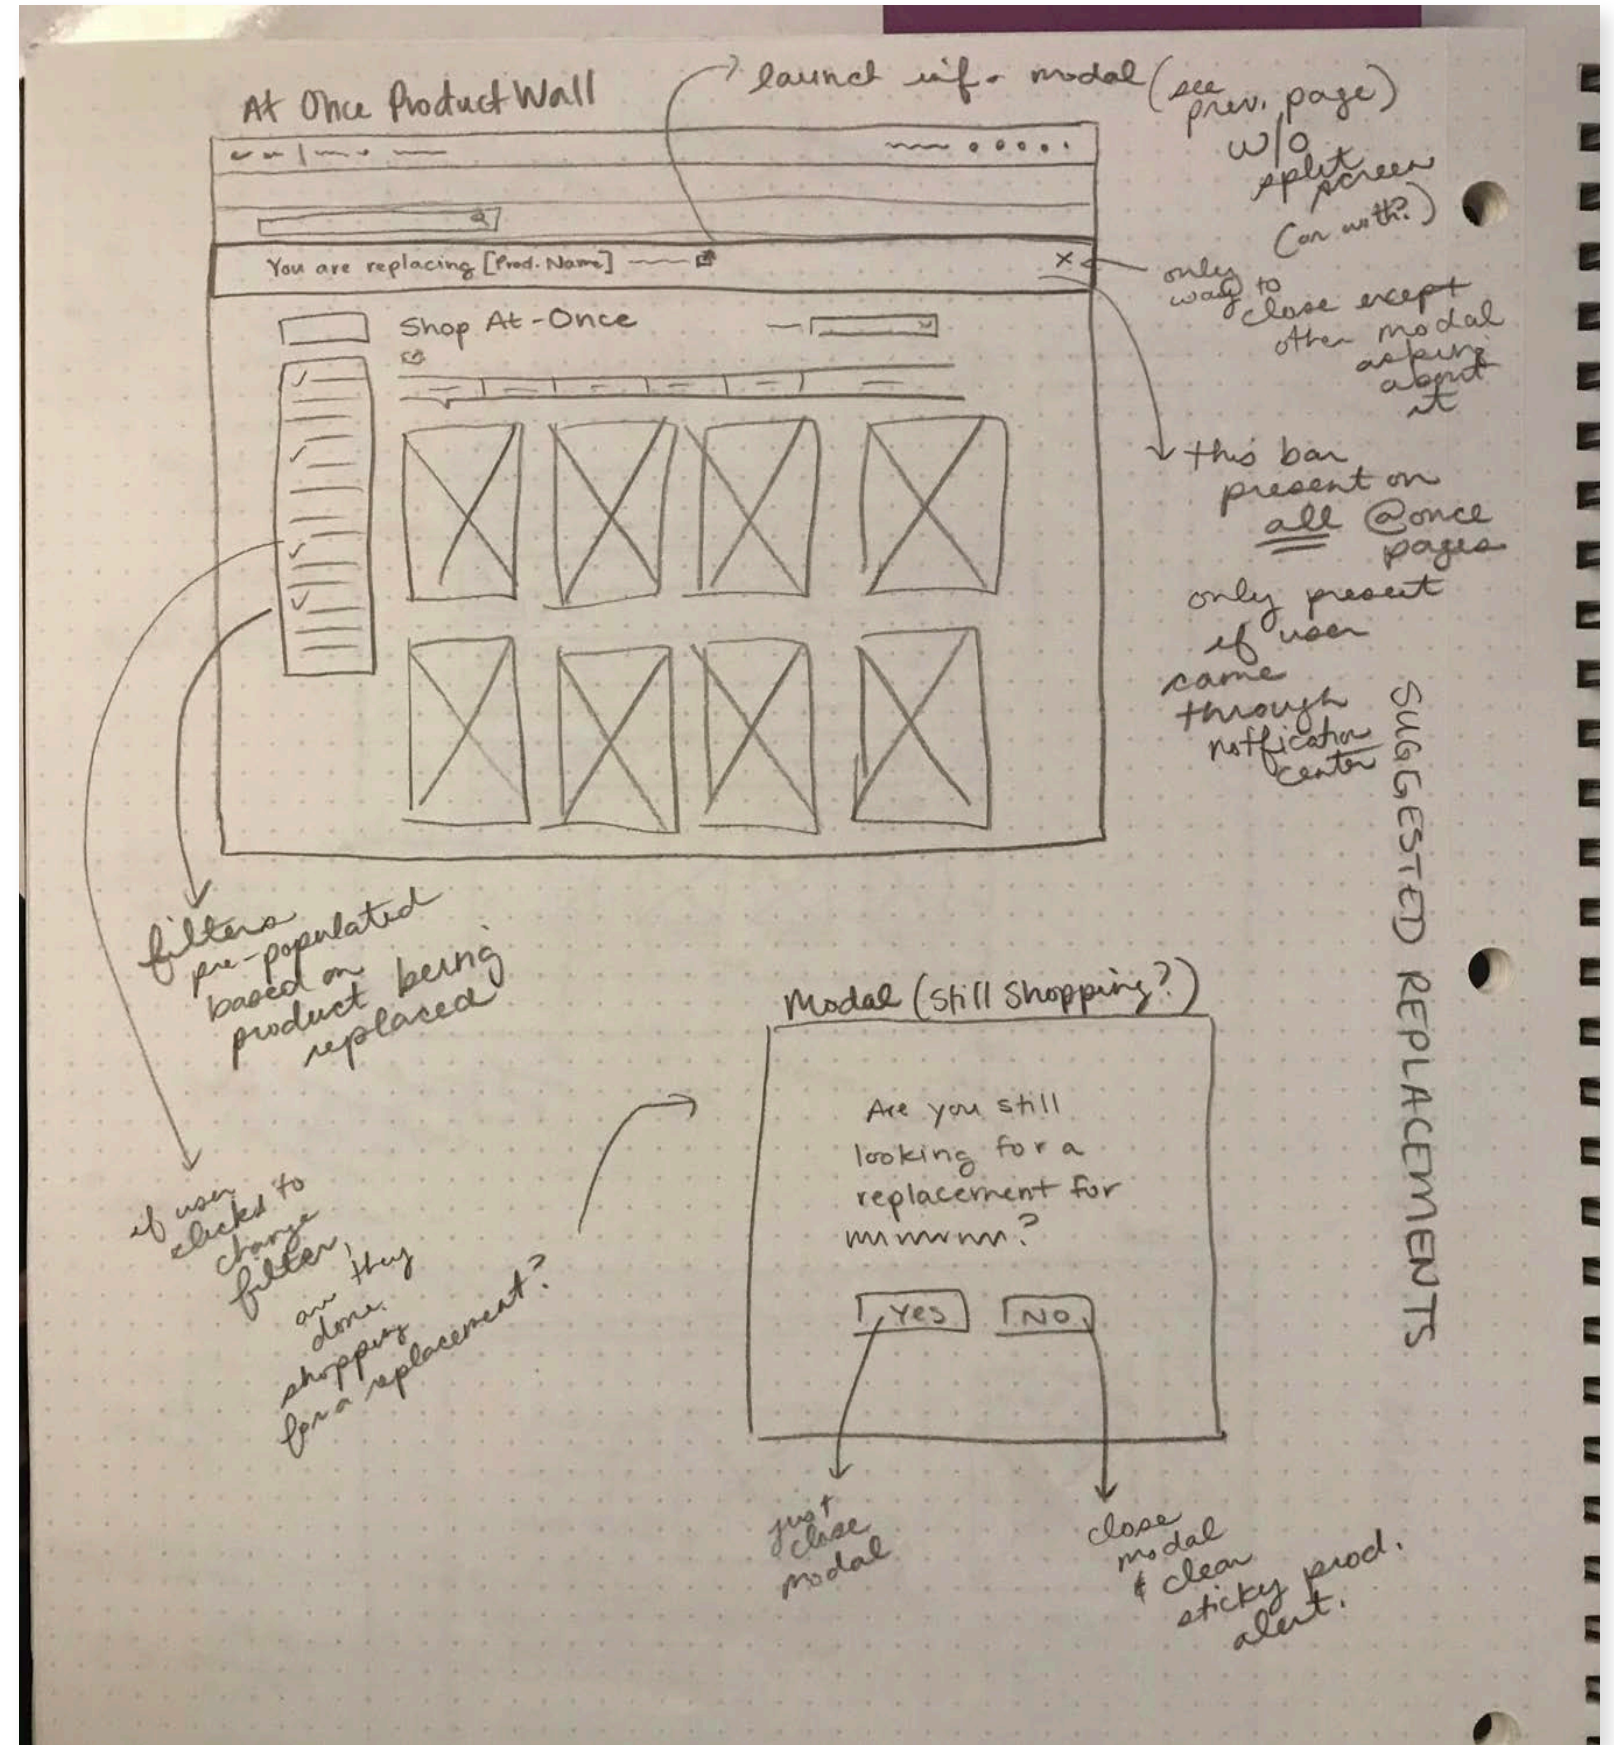 At Once Product Wall
launch info modal (see
prev. page)
w/o
split
screen
(or with?)
You are replacing [Prod. Name]
X
only
way to
close except
other modal
asking
about
it
Shop At-Once
this bar
present on
all @once
pages
only present
if user
came
through
notification
center
SUGGESTED REPLACEMENTS
filters
pre-populated
based on
product being
replaced
if user
clicked to
change
filter,
are they
done
shopping
for a replacement?
Modal (Still Shopping?)
Are you still
looking for a
replacement for
?
Yes
NO
just
close
modal
close
modal
& clear
sticky prod.
alert.